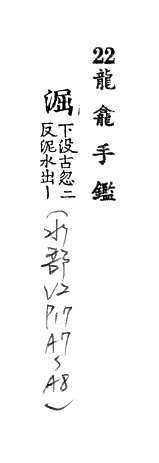 22龍龕手鑑
淈
下没古忽二
反泥水出丨
(水部
V2
P17
A7
〜
A8)